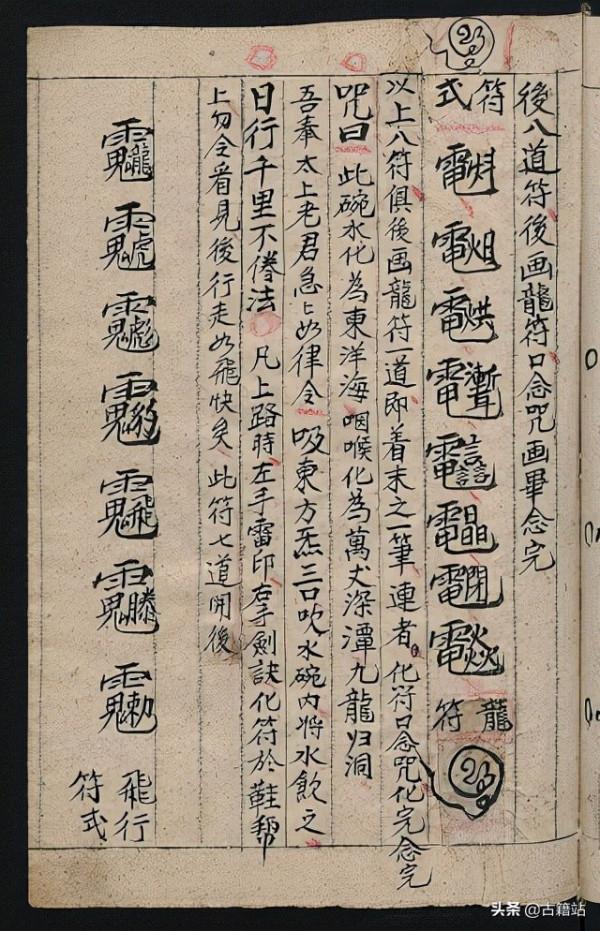 後八道符後画龍符口念咒画畢念完
符式
龍符
以上八符俱後画龍符一道即着末之一筆連者化符口念咒化完念完
咒曰 此碗水化為東洋海咽喉化為萬丈深潭九龍归洞
吾奉太上老君急〻如律令 吸東方炁三口吹水碗内将水飲之
日行千里不倦法 凡上路時左手雷印右手劍訣化符於鞋帮
上勿令看見後行走如飛快矣 此符七道開後
飛行符式
头条 @古籍站